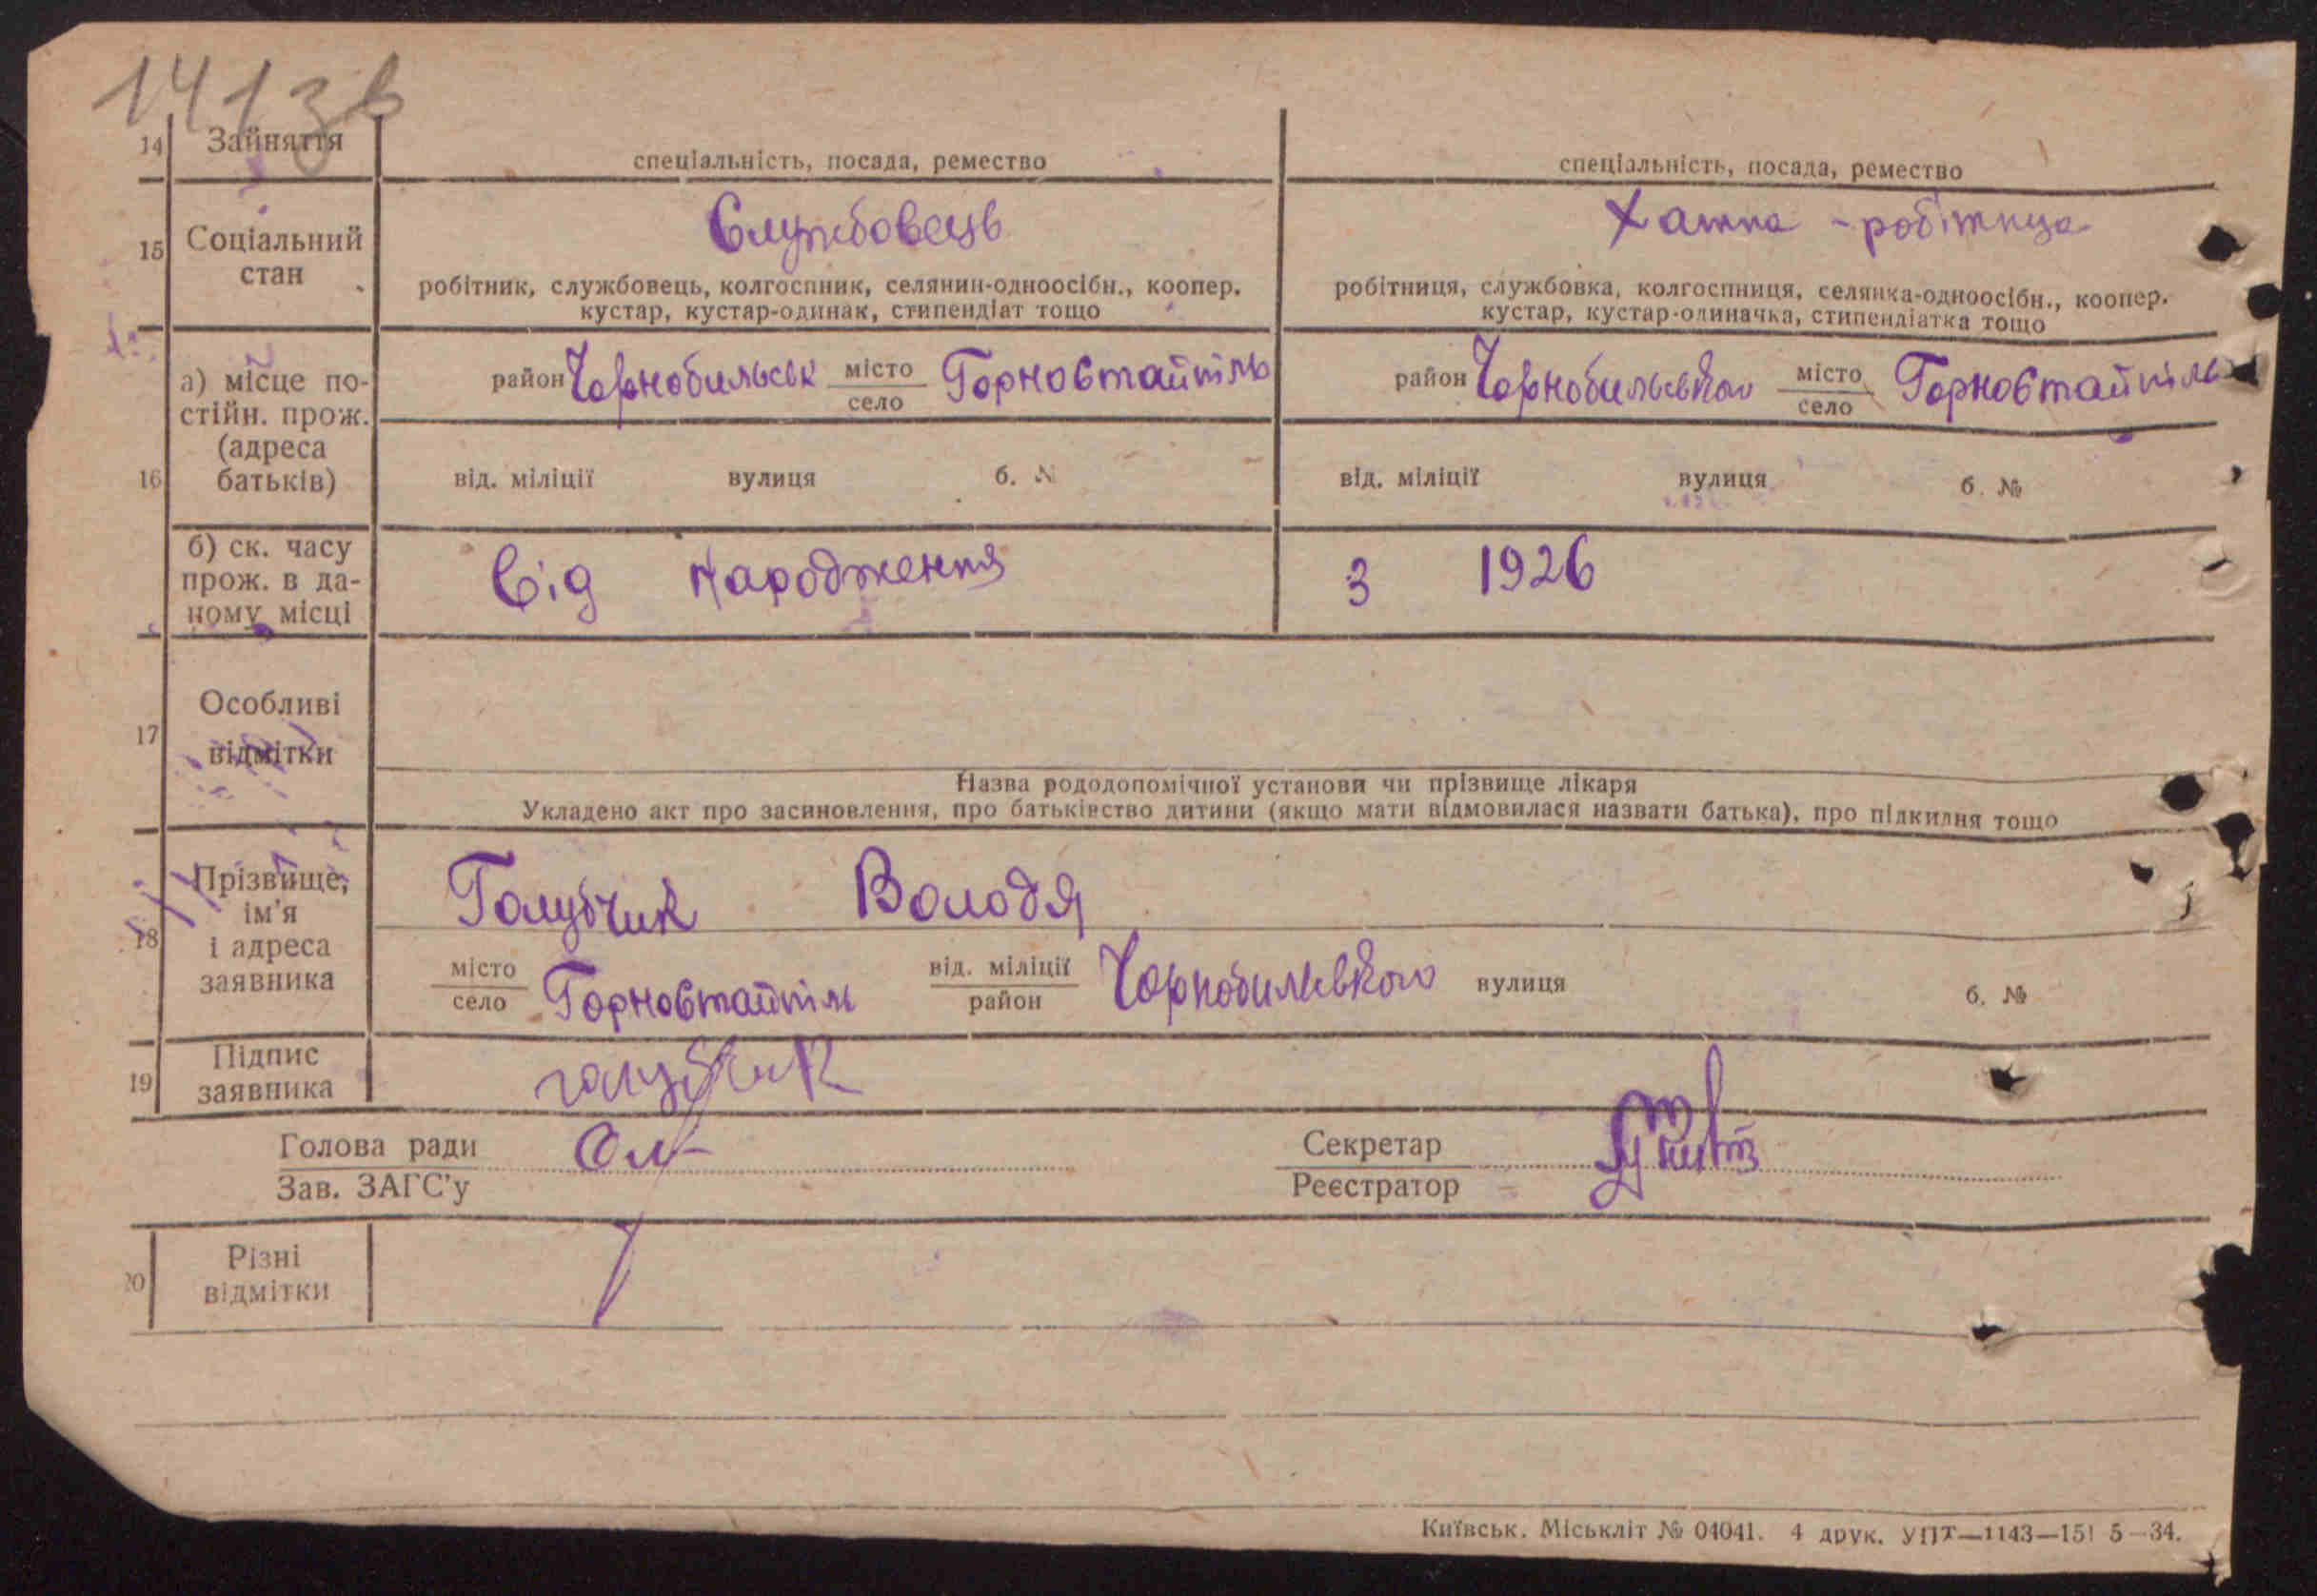 141зв
14 Зайняття спеціальність, посада, ремество спеціальність, посада, ремество
Службовець Хатна - робітниця
15 Соціальний стан
робітник, службовець, колгоспник, селянин-одноосібн., коопер. робітниця, службовка, колгоспниця, селянка-одноосібн., коопер.
кустар, кустар-одинак, стипендіат тощо кустар, кустар-одиначка, стипендіатка тощо
16 а) місце постійн. прож. (адреса батьків)
район Чорнобильськ місто село Горностайпіль район Чорнобильського місто село Горностайпіль
від. міліції вулиця б. № від. міліції вулиця б. №
б) ск. часу прож. в даному місці
Від народження З 1926
17 Особливі відмітки
Назва рододопомічної установи чи прізвище лікаря
Укладено акт про засиновлення, про батьківство дитини (якщо мати відмовилася назвати батька), про підкидня тощо
18 Прізвище, ім'я і адреса заявника
Голубчик Володя
місто село Горностайпіль від. міліції район Чорнобильського вулиця б. №
19 Підпис заявника Голубчик
Голова ради Секретар
Зав. ЗАГС'у Реєстратор
20 Різні відмітки
Київськ. Міськліт № 04041. 4 друк. УПТ—1143—151 5—34.